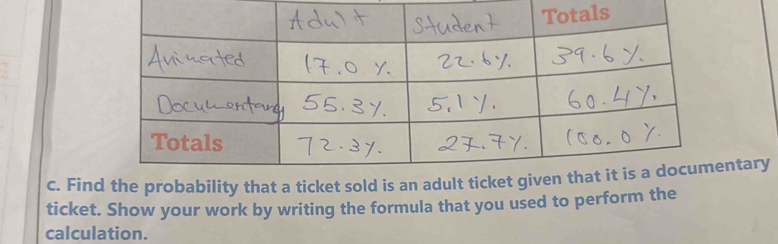 Adult Student Totals
Animated 17.0 %. 22.6 %. 39.6 %.
Documentary 55.3 %. 5.1 %. 60.4 %.
Totals 72.3 %. 27.7 %. 100.0 %.
c. Find the probability that a ticket sold is an adult ticket given that it is a documentary
ticket. Show your work by writing the formula that you used to perform the
calculation.